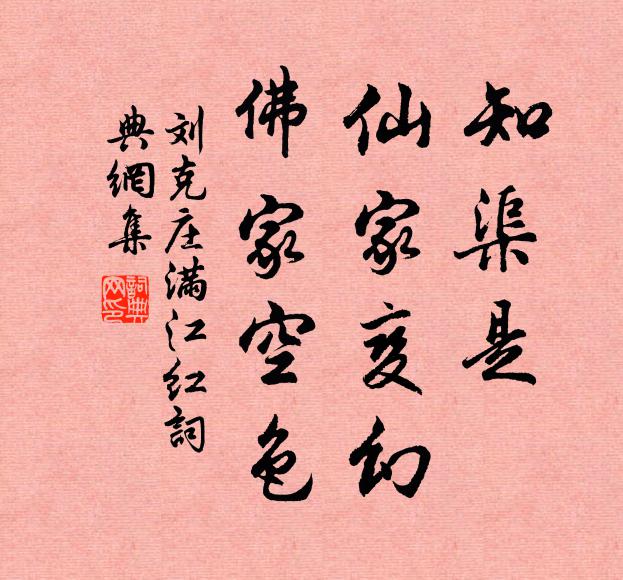 知渠是
仙家变幻
佛家空色
刘克庄满江红詞
典網集
詞典网印